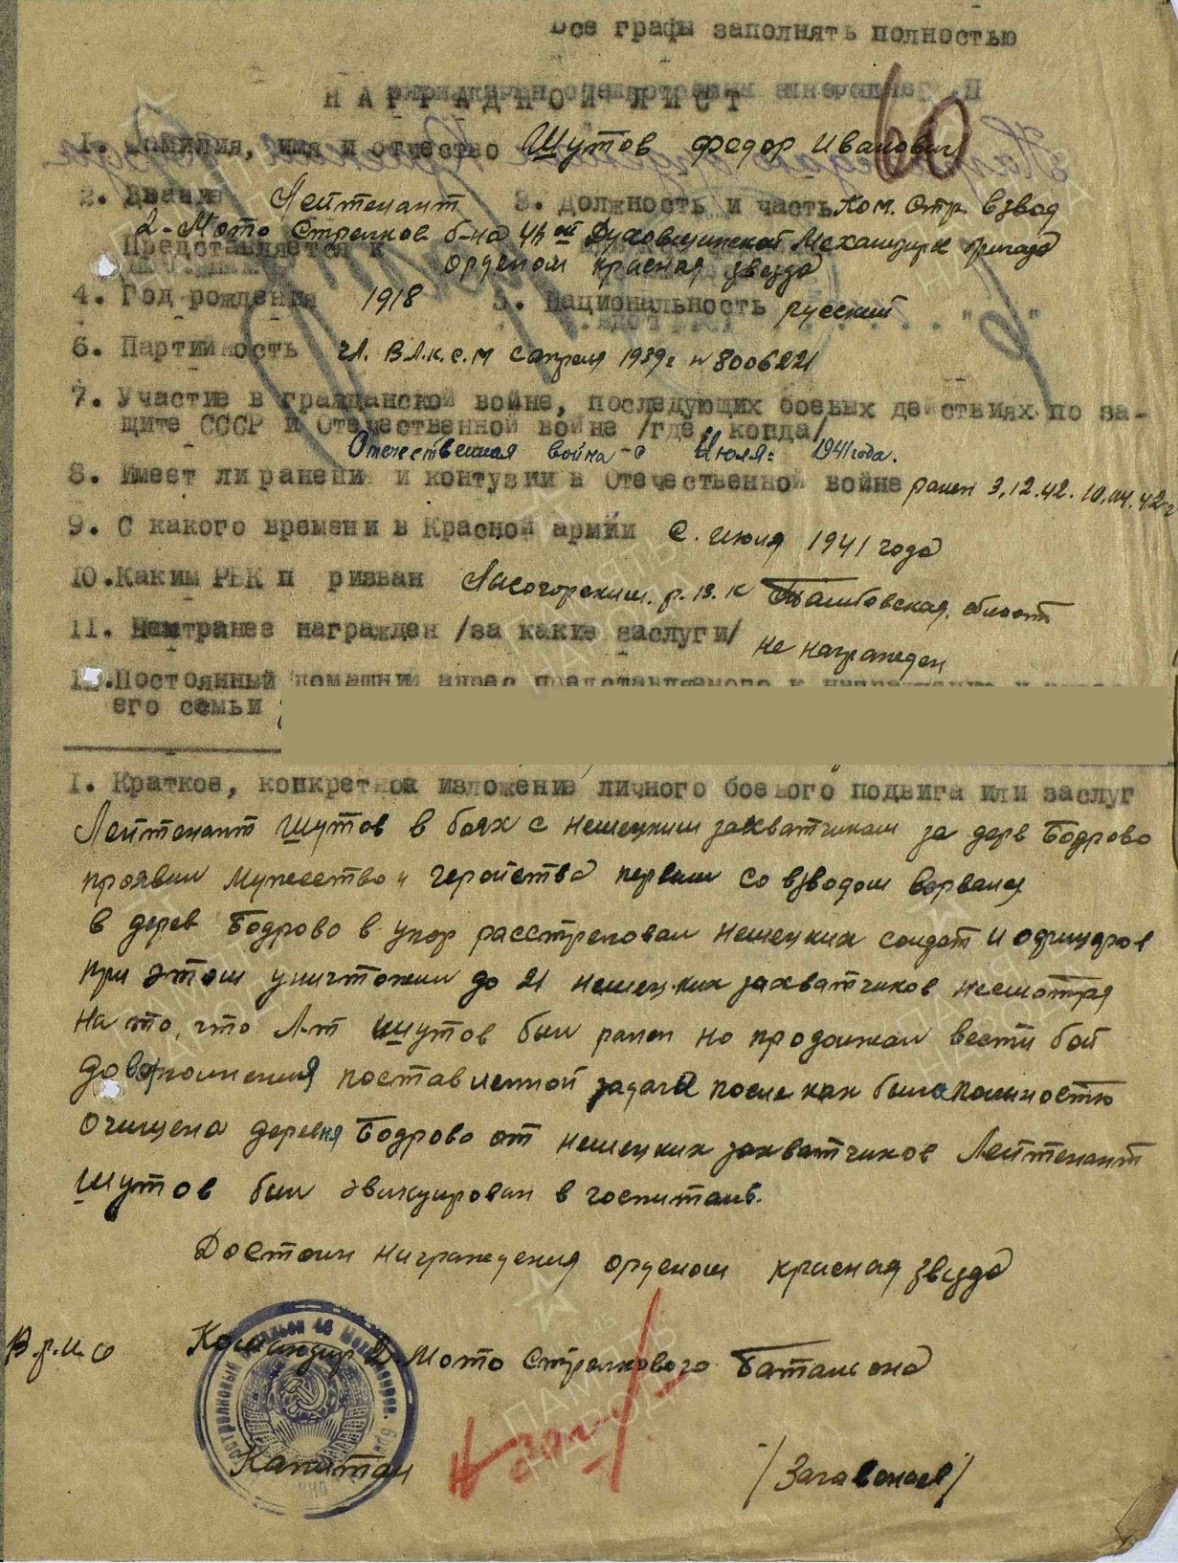 Все графы заполнять полностью
60
НАГРАДНОЙ ЛИСТ
1. Фамилия, имя и отчество Шутов Федор Иванович
2. Звание Лейтенант 3. Должность и часть Ком. Отр. Взвод
2-Мото Стрелков б-на 46ой Духовщинской Механизирк бригада
Представляется к орденом красная звезда
4. Год рождения 1918 5. Национальность русский
6. Партийность чл. В.Л.К.С.М с апреля 1939г N 8006221
7. Участие в гражданской войне, последующих боевых действиях по за-
щите СССР и Отечественной войне /где, когда/
Отечественная война - с Июля 1941 года.
8. Имеет ли ранения и контузии в Отечественной войне ранен 3.12.42. 10.04.42г
9. С какого времени в Красной армии С. июля 1941 года
10. Каким РВК п ризван Лысогорским. р.в.к Тамбовская. област
11. Чем ранее награжден /за какие заслуги/ не награжден
12. Постоянный домашний адрес представляемого к
его семьи
I. Краткое, конкретное изложение личного боевого подвига или заслуг
Лейтенант Шутов в боях с немецким захватчикам за дерв Бодрово
проявил мужество и геройства первым со взводом ворвался
в дерев Бодрово в упор расстреловал немецких солдат и офицеров
при этом уничтожил до 21 немецких захватчиков несмотря
на то, что Л-т Шутов был ранен но продолжал вести бой
до выполнения поставленной задачи после как была полностью
очищена деревня Бодрово от немецких захватчиков Лейтенант
Шутов был эвакуирован в госпиталь.
Достоин награждения орденом красная звезда
В.р.и.о Командир 2. Мото Стрелкового Баталиона
Капитан